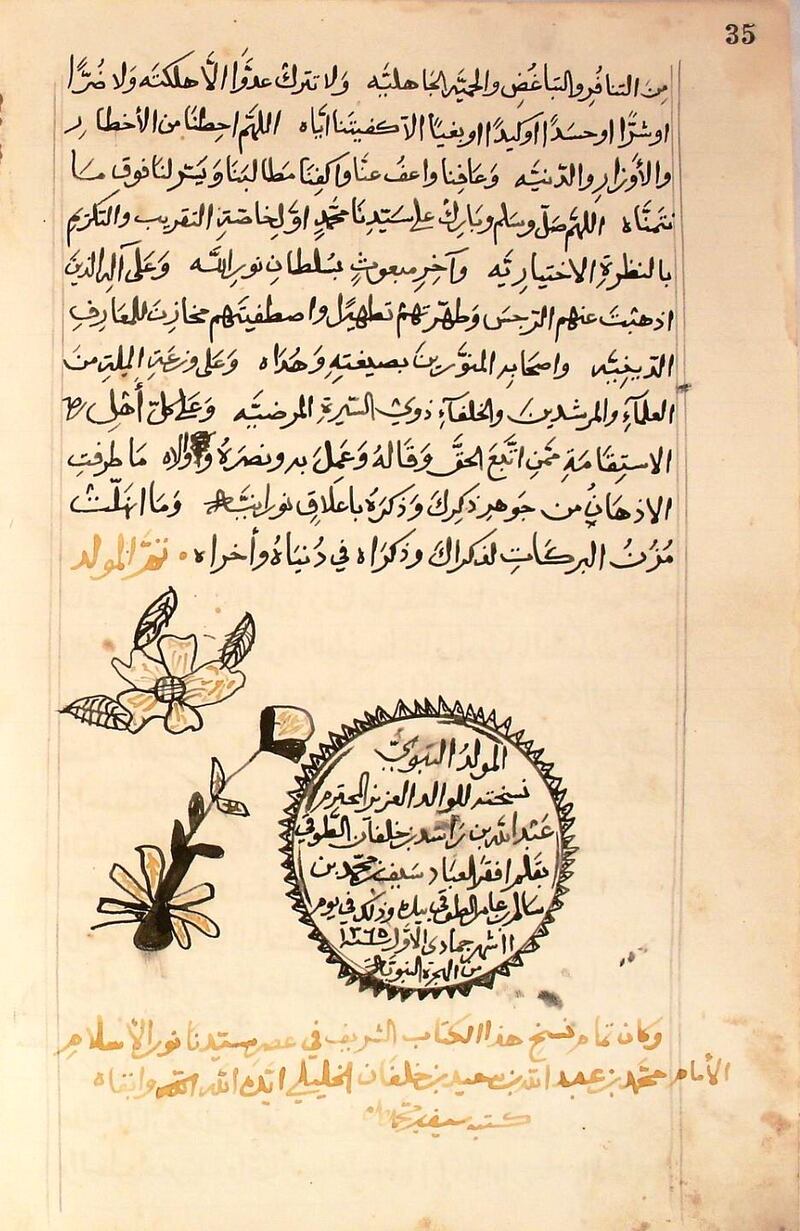 35
مِنَ التنافُرِ والتباغُضِ والحميّه الجاهليّه ولا تترك عدوًّا الّا هلكته ولا ضُرًّا
او شرًّا او حسدًا او كيدًا او بغيًا الّا كفيتنا ايّاه اللهمّ احِطنا من الأخطار
والأوزارِ والدنيّه وَعافِنا واعفُ عنّا واكفِنَا مَطالبَنَا وَيسّر لنَا فوق ما
نتمنّاه اللهمّ صلّ وسلم وبارك على سَيّدِنَا محمّدٍ اوّلِ خاصّةِ التقريب والتكريم
بالنظرةِ الاختياريّه وآخِرِ مبعوثٍ بسُلطانِ نورِ اللّه وَعَلى آلهِ الذين
اذهبتَ عنهم الرّجسَ وَطهّرتَهُمْ تطهيرًا واصطفيتَهم مخازنَ للمعارفِ
الدّينيّه واصحابِهِ المنوّرين بصبغتهِ وَهُدَاه وَعَلى وزعةِ الملّةِ منَ
العلمآءِ والمرشدين والخلفآءِ ذوي السّيرةِ المرضيّه وَعَلى كلّ أهْلِ
الاستِقامَةِ ممّنِ اتّبَعَ الحقَّ وَقَالهُ وَعَمِلَ بهِ ونصَرَهُ وَوَالاه مَا طرفتِ
الاذهانُ من جَوهرِ ذكرِكَ وَذكرَهُ باعلاقٍ نورانيّه وَمَا انهَلّتْ
مُزْنُ البركاتِ لذكراكَ وذكرَاه في دُنيَاهُ وأخراه تمّ المولد
المولدُ النبويّ
نسخته للوالد العزيز المحترم
عَبْد الله بن راشد بن خلفان الطوقي
بقلم افقر العباد سيف بن محمّد بن
سالم بن عامر الطوقي بيده وذلك في يوم
١١ شهر جمادى الأوّل سنة ١٣٦٥
من الهجرة النبويّة
وكان تمام نسخ هذا الكتاب الشريف في عصر سيّدنا نور الأسلام
الأمام محمّد بن عبد الله بن سعيد بن خلفان الخليلي ايّده الله وابقاه
كتبه سيف بن محمّد